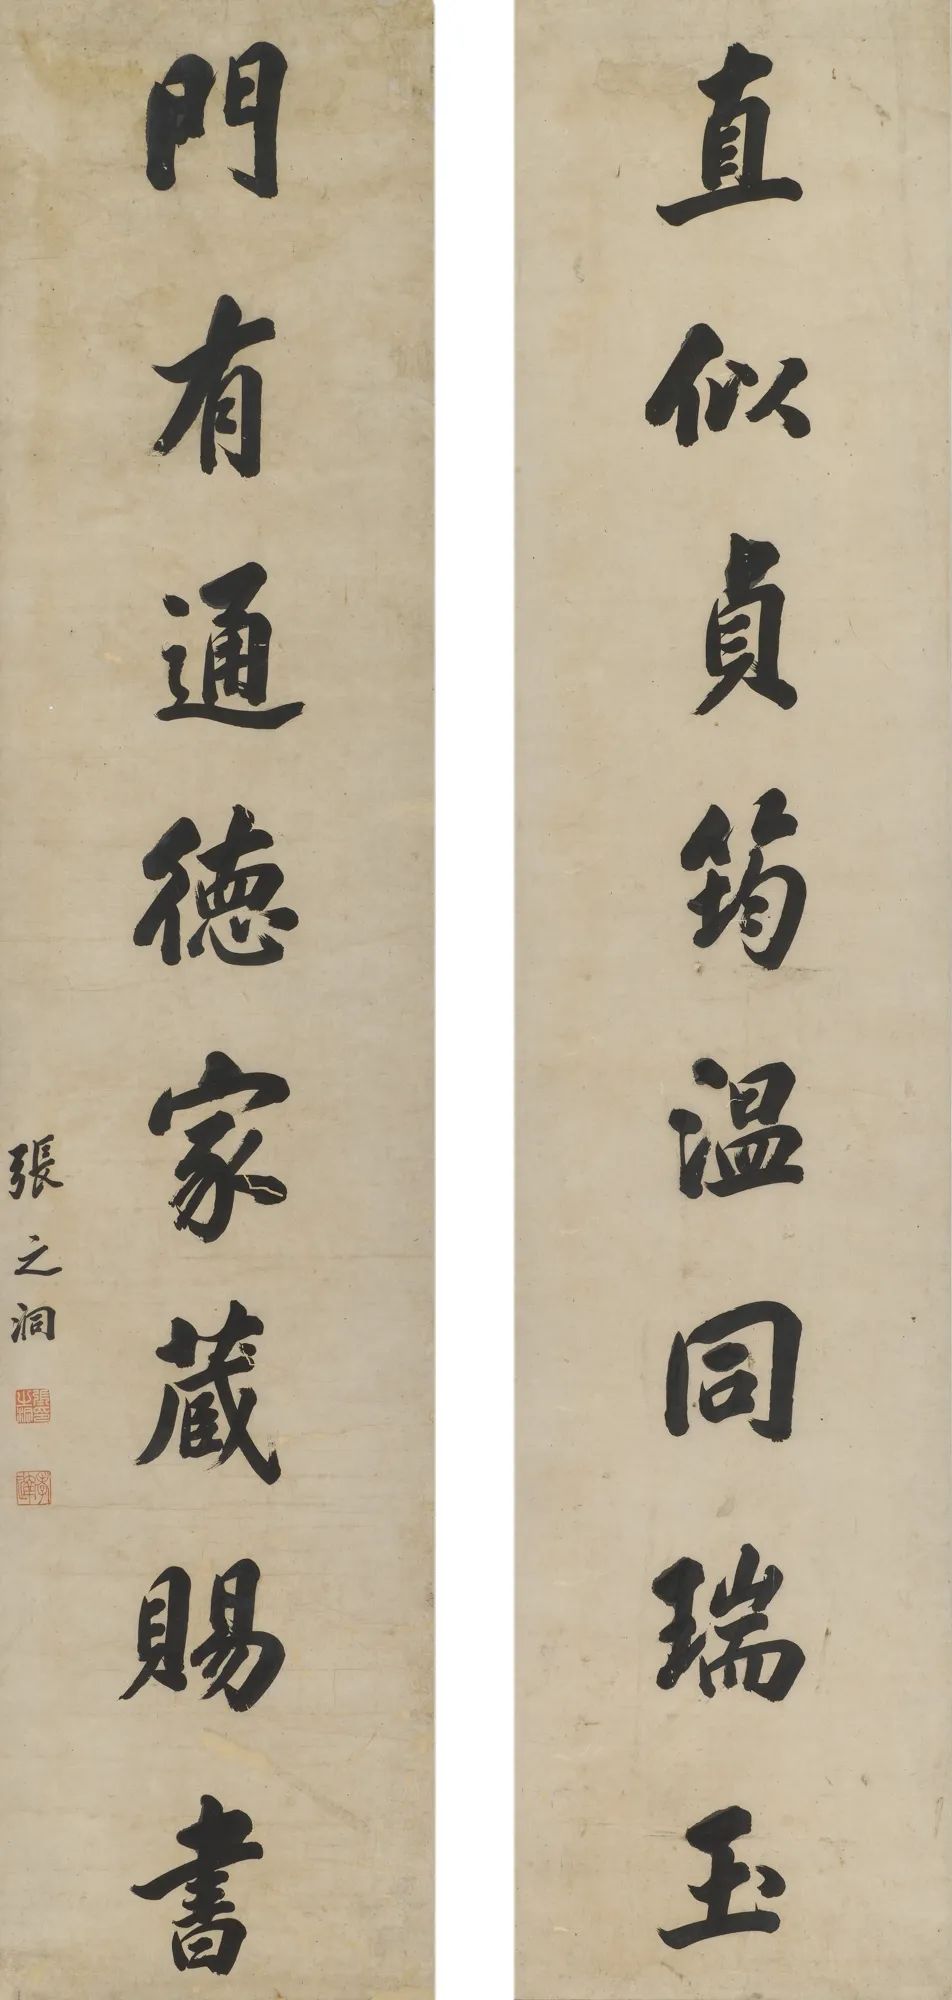 直似貞筠温同瑞玉
門有通德家蔵賜書
張之洞